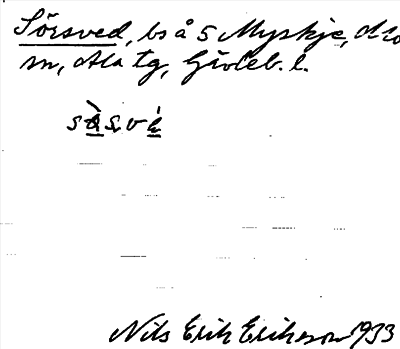 Sörsved, bs å 5 Myskje,
sn, Ala tg, Gävleb. l.
Nils Erik Eriksson 1933